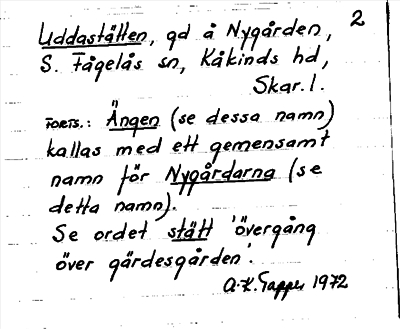 Uddastätten, gd å Nygården, 2
S. Fågelås sn, Kåkinds hd,
Skar. l.
FORTS.: Ängen (se dessa namn)
kallas med ett gemensamt
namn för Nygårdarna (se
detta namn).
Se ordet stätt 'övergång
över gärdesgården'.
A.-K. Tapper 1972